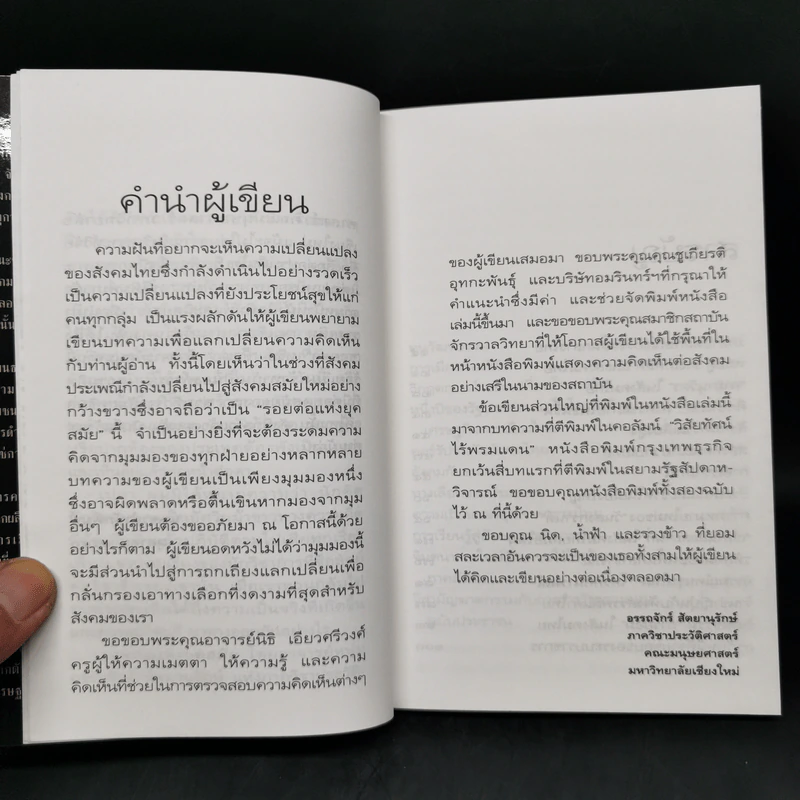 คำนำผู้เขียน
ความฝันที่อยากจะเห็นความเปลี่ยนแปลง
ของสังคมไทยซึ่งกำลังดำเนินไปอย่างรวดเร็ว
เป็นความเปลี่ยนแปลงที่ยังประโยชน์สุขให้แก่
คนทุกกลุ่ม เป็นแรงผลักดันให้ผู้เขียนพยายาม
เขียนบทความเพื่อแลกเปลี่ยนความคิดเห็น
กับท่านผู้อ่าน ทั้งนี้โดยเห็นว่าในช่วงที่สังคม
ประเพณีกำลังเปลี่ยนไปสู่สังคมสมัยใหม่อย่าง
กว้างขวางซึ่งอาจถือว่าเป็น “รอยต่อแห่งยุค
สมัย” นี้ จำเป็นอย่างยิ่งที่จะต้องระดมความ
คิดจากมุมมองของทุกฝ่ายอย่างหลากหลาย
บทความของผู้เขียนเป็นเพียงมุมมองหนึ่ง
ซึ่งอาจผิดพลาดหรือตื้นเขินหากมองจากมุม
อื่นๆ ผู้เขียนต้องขออภัยมา ณ โอกาสนี้ด้วย
อย่างไรก็ตาม ผู้เขียนอดหวังไม่ได้ว่ามุมมองนี้
จะมีส่วนนำไปสู่การถกเถียงแลกเปลี่ยนเพื่อ
กลั่นกรองเอาทางเลือกที่งดงามที่สุดสำหรับ
สังคมของเรา
ขอขอบพระคุณอาจารย์นิธิ เอียวศรีวงศ์
ครูผู้ให้ความเมตตา ให้ความรู้ และความ
คิดเห็นที่ช่วยในการตรวจสอบความคิดเห็นต่างๆ
ของผู้เขียนเสมอมา ขอบพระคุณคุณชูเกียรติ
อุทกะพันธุ์ และบริษัทอมรินทร์ฯที่กรุณาให้
คำแนะนำซึ่งมีค่า และช่วยจัดพิมพ์หนังสือ
เล่มนี้ขึ้นมา และขอขอบพระคุณสมาชิกสถาบัน
จักรวาลวิทยาที่ให้โอกาสผู้เขียนได้ใช้พื้นที่ใน
หน้าหนังสือพิมพ์แสดงความคิดเห็นต่อสังคม
อย่างเสรีในนามของสถาบัน
ข้อเขียนส่วนใหญ่ที่พิมพ์ในหนังสือเล่มนี้
มาจากบทความที่ตีพิมพ์ในคอลัมน์ “วิสัยทัศน์
ไร้พรมแดน” หนังสือพิมพ์กรุงเทพธุรกิจ
ยกเว้นสี่บทแรกที่ตีพิมพ์ในสยามรัฐสัปดาห-
วิจารณ์ ขอขอบคุณหนังสือพิมพ์ทั้งสองฉบับ
ไว้ ณ ที่นี้ด้วย
ขอบคุณ นิด, น้ำฟ้า และรวงข้าว ที่ยอม
สละเวลาอันควรจะเป็นของเธอทั้งสามให้ผู้เขียน
ได้คิดและเขียนอย่างต่อเนื่องตลอดมา
อรรถจักร์ สัตยานุรักษ์
ภาควิชาประวัติศาสตร์
คณะมนุษยศาสตร์
มหาวิทยาลัยเชียงใหม่